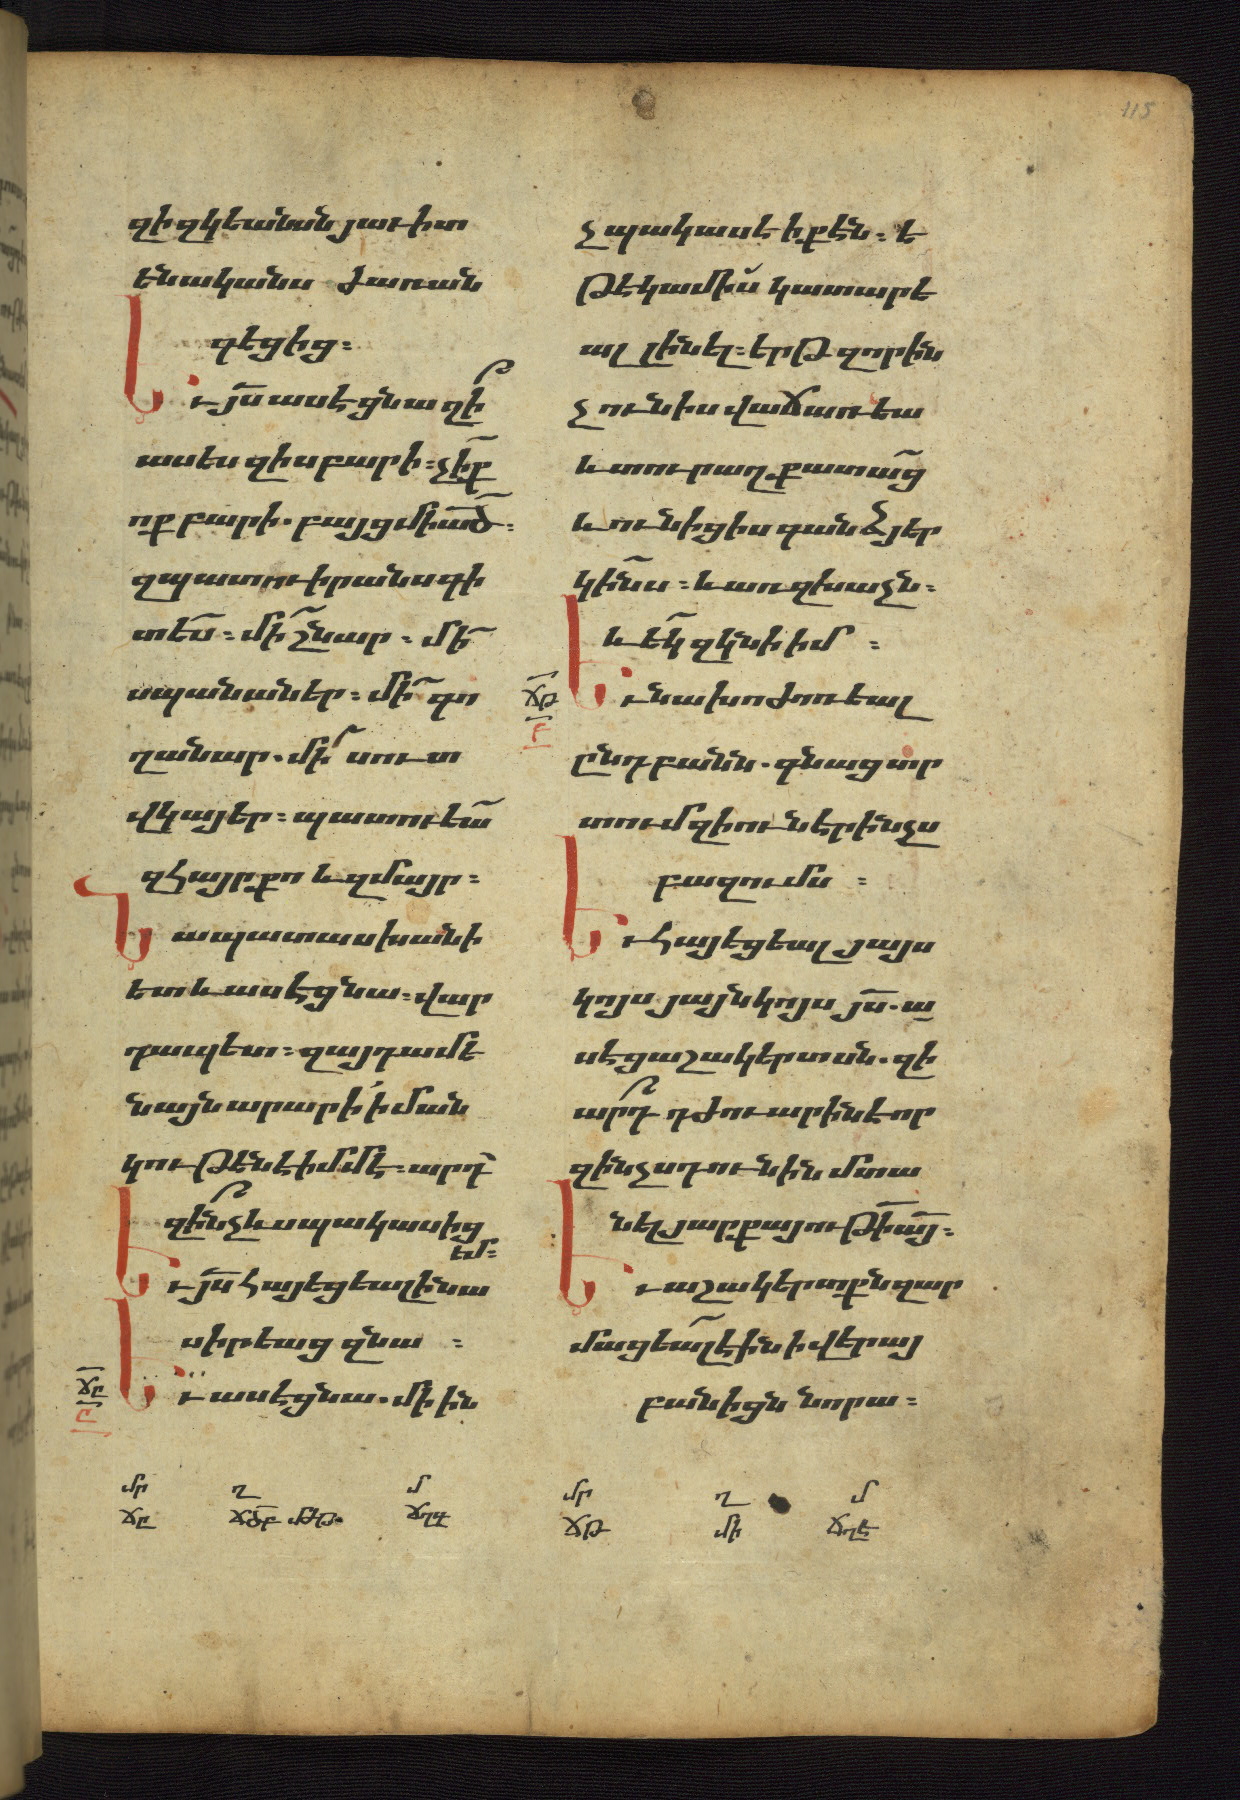 115
զի զկեանսն յաւիտ
ենականս ժառան
գեցից։
Եւ յս̅ ասէ ցնա զի՞
ասես զիս բարի։ չի̅ք
ոք բարի. բայց մի ած̅։
զպատուիրանսն գի
տես̅։ մի՛ շնար։ մի՛
սպանաներ։ մի՛ գո
ղանար. մի՛ սուտ
վկայեր։ պատուեա̅
զհայր քո և զմայր։
Նա պատասխանի
ետ և ասէ ցնա։ վար
դապետ։ զայդ ամե
նայն արարի ի ման
կութենէ իմմէ։ արդ̅
զի՞նչ ևս պակաս իցեմ։
Եւ յս̅ հայեցեալ ի նա
սիրեաց զնա ։
Եւ ասէ ցնա. մի ին
ճը̅
ը̅
չ պակաս է ի քէն։ ե
թէ կամիս կատարե
ալ լինել։ երթ զոր ին
չ ունիս վաճառեա
և տուր աղքատա̅ց
և ունիցիս գանձ յեր
կինս։ և առ զխաչն։
և ե̅կ զկնի իմ ։
Եւ նա խոժոռեալ
ճթ̅
բ̅
ընդ բանն. գնաց տր
տում զի ունէր ինչս
բազումս ։
Եւ հայեցեալ յայս
կոյս յայն կոյս յս̅. ա
սէ ցաշակերտսն. զի
ա՞րդ դժուարին է որ
զինչս դունին մտա
նել յարքայութի̅ ա̅յ։
Եւ աշակերտքն զար
մացեա̅լ էին ի վերայ
բանիցն նորա։
մր ղ մ
ճը ճծբ ճղգ
մր ղ մ
ճթ մի ճղէ